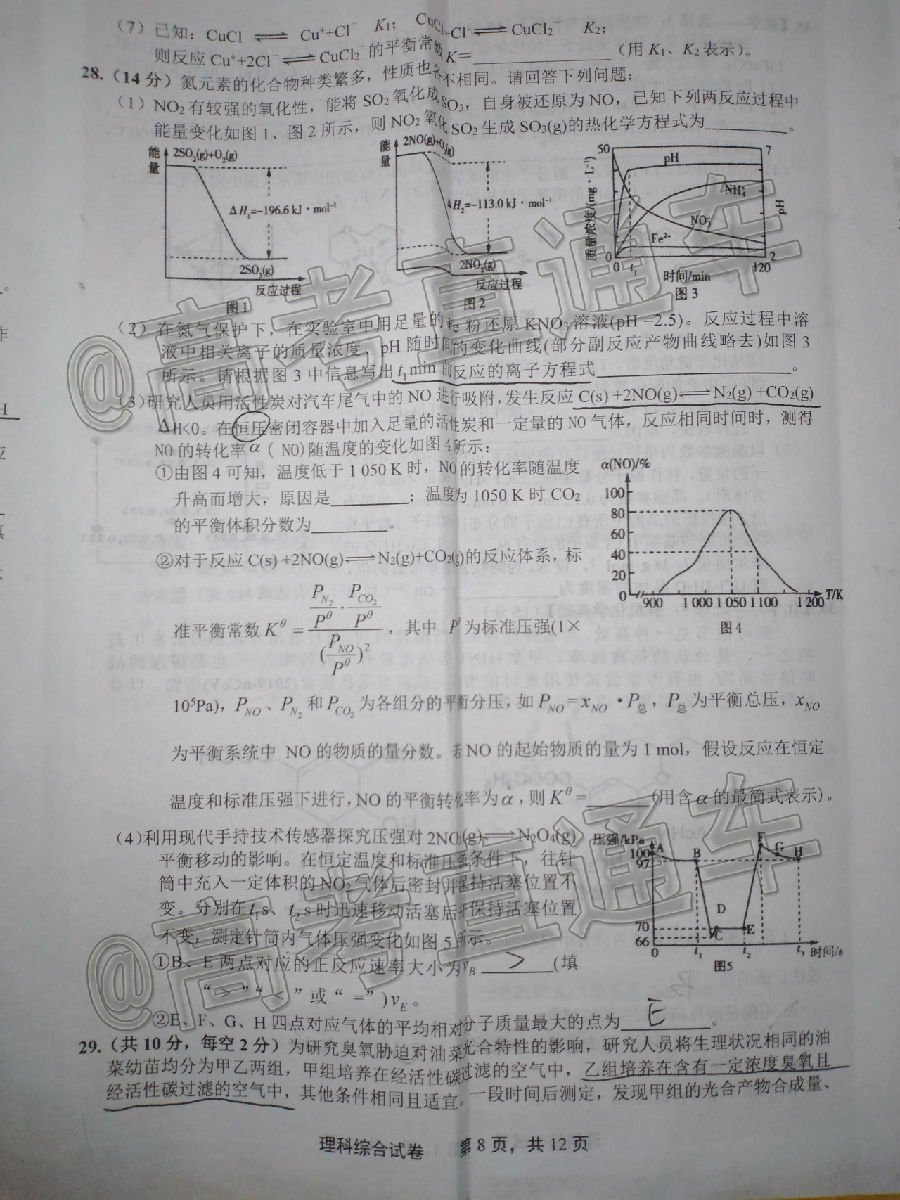 (7) 已知: CuCl ⇌ Cu⁺+Cl⁻ K₁; CuCl+Cl⁻ ⇌ CuCl₂⁻ K₂;
则反应 Cu⁺+2Cl⁻ ⇌ CuCl₂⁻ 的平衡常数 K=________ (用 K₁、K₂ 表示)。
28.(14 分) 氮元素的化合物种类繁多，性质也各不相同。请回答下列问题:
(1) NO₂ 有较强的氧化性，能将 SO₂ 氧化成 SO₃，自身被还原为 NO，已知下列两反应过程中
能量变化如图 1、图 2 所示，则 NO₂ 氧化 SO₂ 生成 SO₃(g)的热化学方程式为________。
能量 2SO₂(g)+O₂(g) ΔH₁=-196.6 kJ·mol⁻¹ 2SO₃(g) 反应过程 图1
能量 2NO(g)+O₂(g) ΔH₂=-113.0 kJ·mol⁻¹ 2NO₂(g) 反应过程 图2
质量浓度/(mg·L⁻¹) 50 0 t₁ 120 时间/min pH 7 2 pH NH₄⁺ NO₃⁻ Fe²⁺ 图3
(2) 在氮气保护下，在实验室中用足量的铁粉还原 KNO₃ 溶液(pH=2.5)。反应过程中溶
液中相关离子的质量浓度、pH 随时间的变化曲线(部分副反应产物曲线略去)如图 3
所示。请根据图 3 中信息写出 t₁ min 前反应的离子方程式________
(3)研究人员用活性炭对汽车尾气中的 NO 进行吸附,发生反应 C(s)+2NO(g)⇌N₂(g)+CO₂(g)
ΔH<0。在恒压密闭容器中加入足量的活性炭和一定量的 NO 气体，反应相同时间时，测得
NO 的转化率 α( NO)随温度的变化如图 4所示:
①由图 4 可知，温度低于 1 050 K 时，NO的转化率随温度
升高而增大，原因是________；温度为 1050 K 时 CO2
的平衡体积分数为________。
α(NO)/% 100 80 60 40 20 0 900 1 000 1 050 1100 1 200 T/K
图4
②对于反应 C(s)+2NO(g)⇌N₂(g)+CO₂(g)的反应体系，标
准平衡常数 K^θ = (P_N₂/P^θ · P_CO₂/P^θ)/(P_NO/P^θ)²，其中 P^θ为标准压强(1×
10⁵Pa)，P_NO、P_N₂ 和 P_CO₂ 为各组分的平衡分压，如 P_NO=x_NO·P总，P总为平衡总压，x_NO
为平衡系统中 NO 的物质的量分数。若NO 的起始物质的量为 1 mol，假设反应在恒定
温度和标准压强下进行，NO 的平衡转化率为α，则 K^θ=________(用含α的最简式表示)。
(4)利用现代手持技术传感器探究压强对 2NO₂(g)⇌N₂O₄(g)
平衡移动的影响。在恒定温度和标准压强条件下，往针
筒中充入一定体积的 NO₂ 气体后密封并保持活塞位置不
变。分别在 t₁ s、t₂ s 时迅速移动活塞后并保持活塞位置
不变，测定针筒内气体压强变化如图 5所示。
压强/kPa 100 97 70 66 0 A B C D E F G H t₁ t₂ t₃ 时间/s
图5
①B、E 两点对应的正反应速率大小为 v_B > (填
“>”“<”或“=”)v_E。
②E、F、G、H 四点对应气体的平均相对分子质量最大的点为 E 。
29.(共 10 分，每空 2 分) 为研究臭氧胁迫对油菜光合特性的影响，研究人员将生理状况相同的油
菜幼苗均分为甲乙两组，甲组培养在经活性碳过滤的空气中，乙组培养在含有一定浓度臭氧且
经活性碳过滤的空气中，其他条件相同且适宜。一段时间后测定，发现甲组的光合产物合成量、
理科综合试卷 第 8 页，共 12 页
@高考直通车
@高考直通车